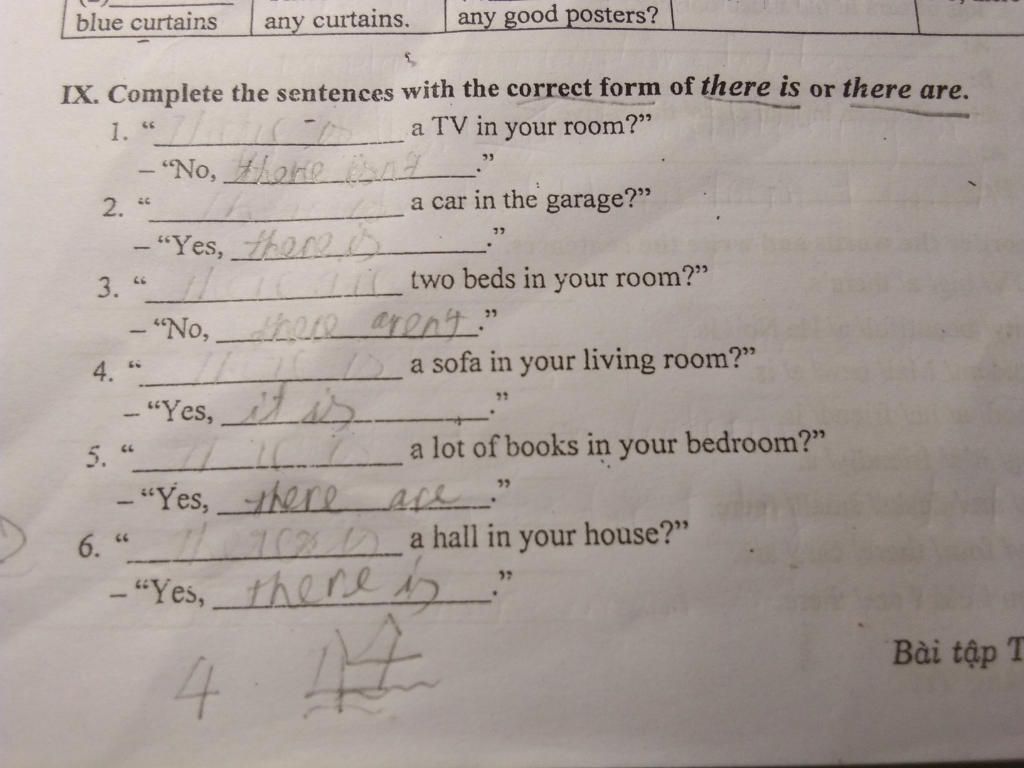 blue curtains any curtains. any good posters?
IX. Complete the sentences with the correct form of there is or there are.
1. “ There is a TV in your room?”
– “No, there isn't .”
2. “ There is a car in the garage?”
– “Yes, there is .”
3. “ There are two beds in your room?”
– “No, there aren't .”
4. “ There is a sofa in your living room?”
– “Yes, it is .”
5. “ a lot of books in your bedroom?”
– “Yes, there are .”
6. “ There is a hall in your house?”
– “Yes, there is .”
4
Bài tập T